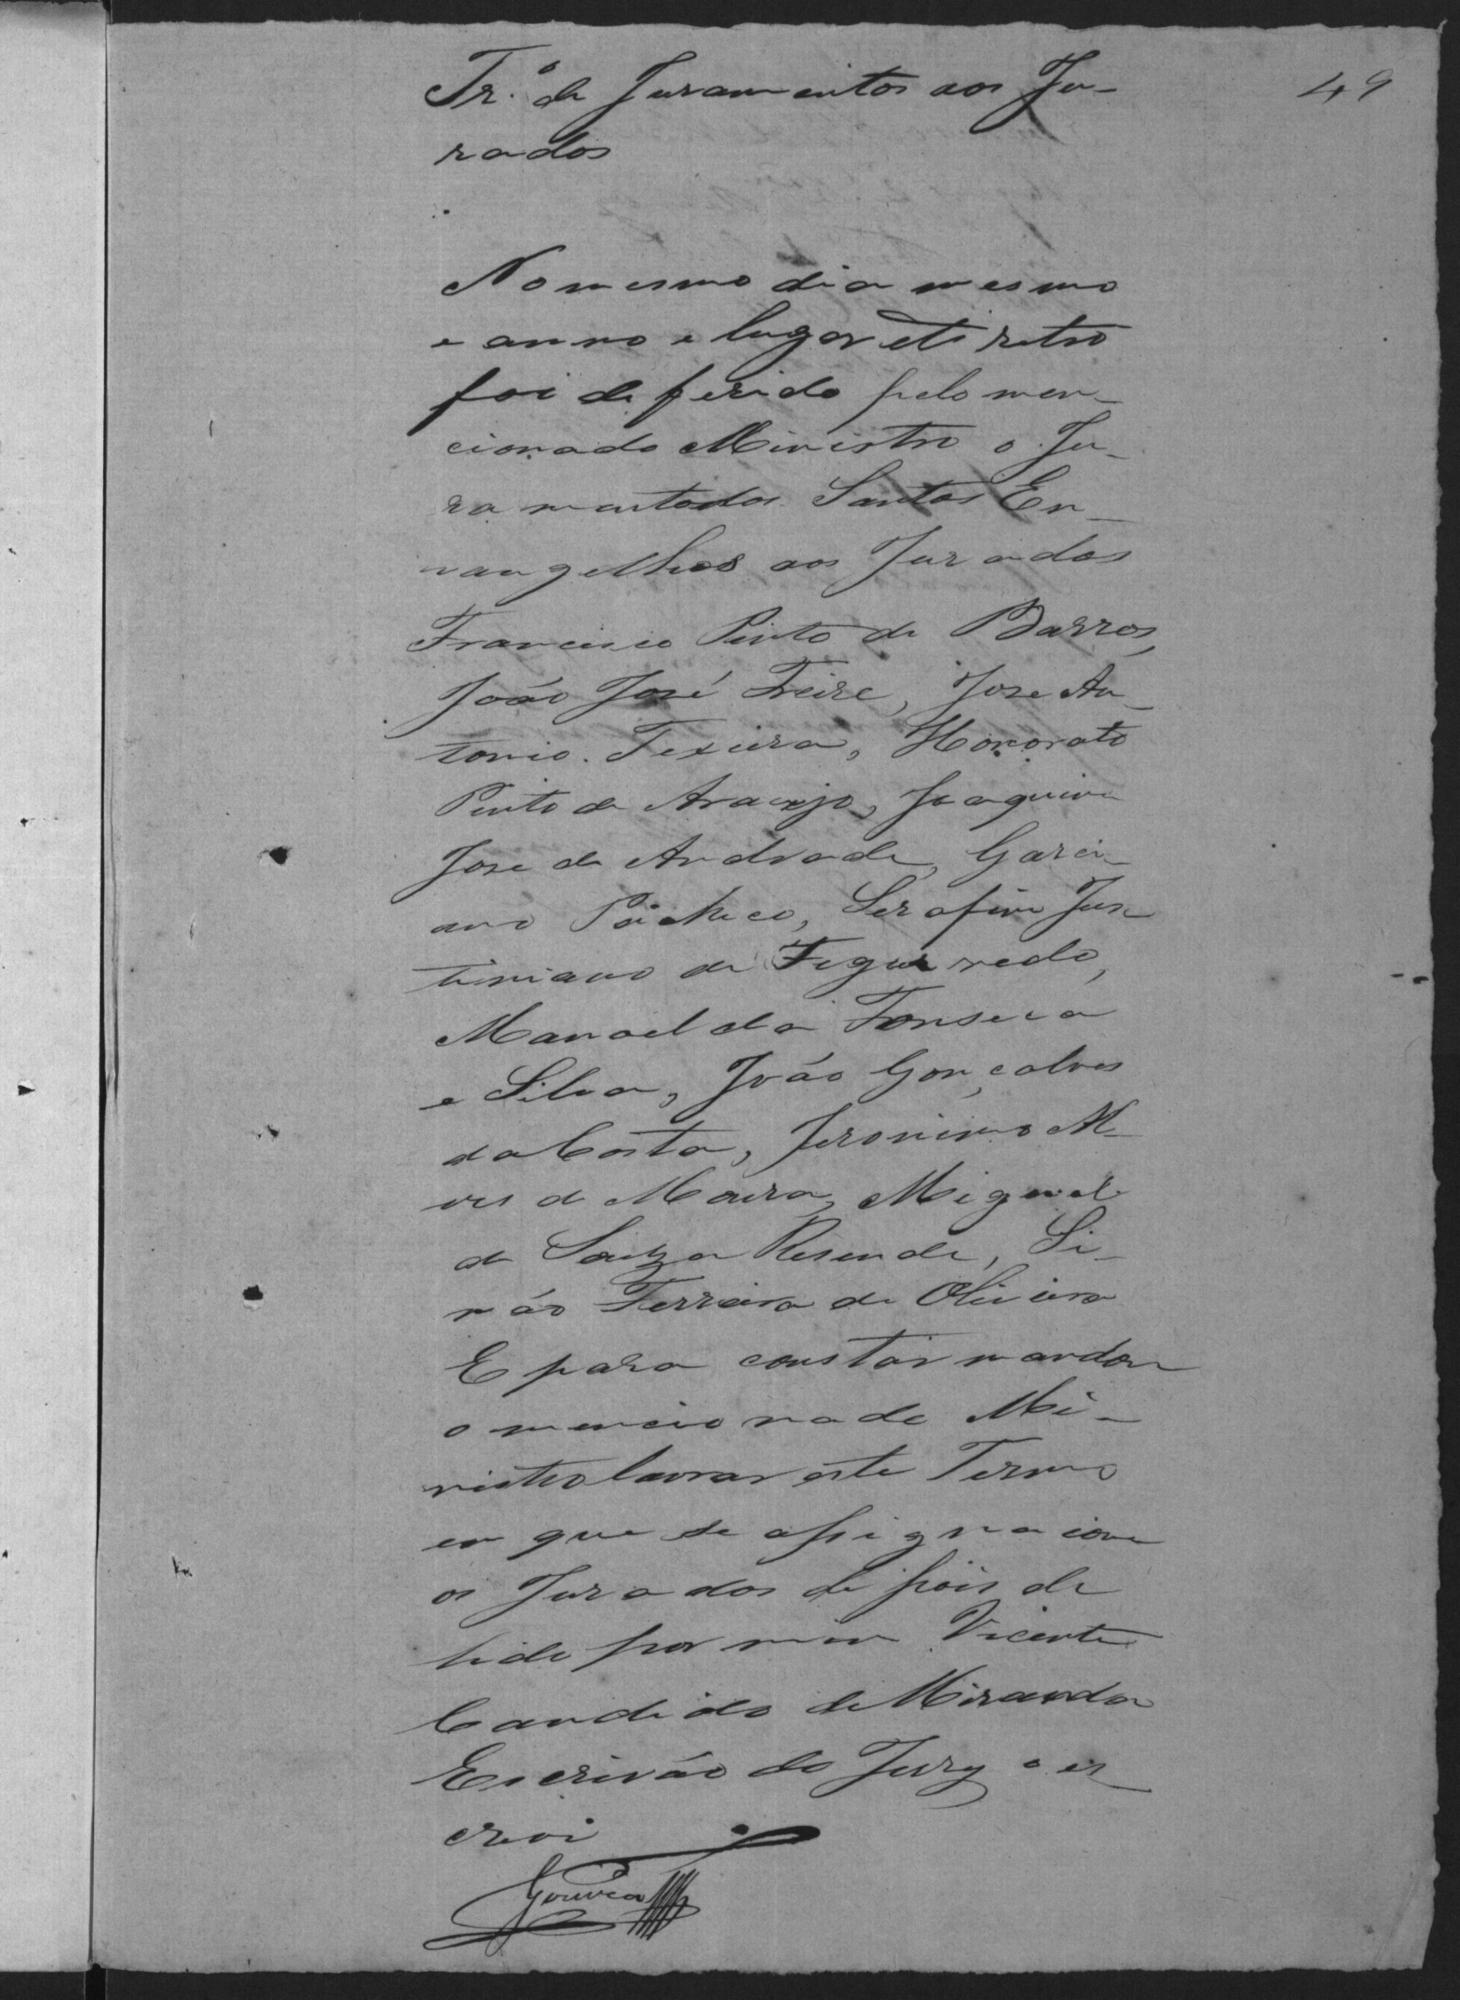 49
Tr.º de Juramentos aos Ju-
rados
No mesmo dia mesmo
e anno e lugar et retro
foi deferido pelo men-
cionado Ministro o Ju-
ramento dos Santos En-
vangelhos aos Jurados
Francisco Pinto de Barros,
João José Freire, Jose An-
tonio Texeira, Honorato
Pinto de Araujo, Joaquim
Jose de Andrade, Garci-
ano Pacheco, Serafim Jus-
tiniano de Figueredo,
Manoel da Fonseca
e Silva, João Gonçalves
da Costa, Jeronimo Al-
ves de Moura, Miguel
de Souza Resende, Si-
mão Ferreira de Oliveira
E para constar mandou
o mencionado Mi-
nistro lavrar este Termo
em que se assigna com
os Jurados depois de
lido por mim Vicente
Candido de Miranda
Escrivão do Jury o es
crevi
Gouvea